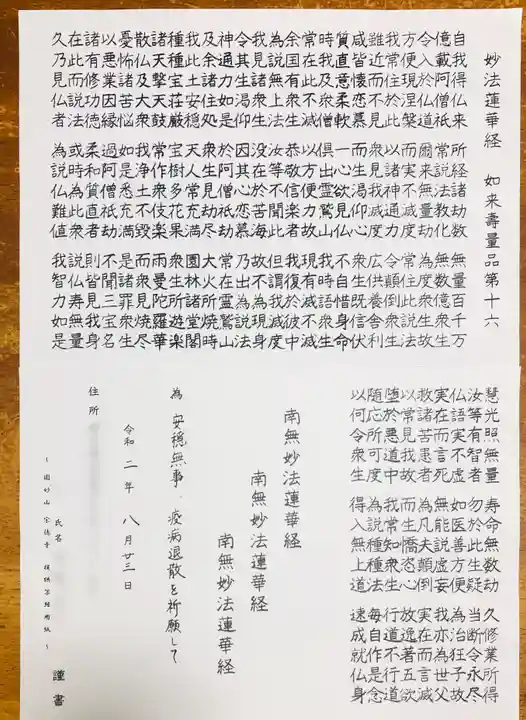 妙法蓮華経　如来壽量品第十六
自我得仏来　所経諸劫数　無量百千万
億載阿僧祇　常説法教化　無数億衆生
令入於仏道　爾来無量劫　為度衆生故
方便現涅槃　而実不滅度　常住此説法
我常住於此　以諸神通力　令顛倒衆生
雖近而不見　衆見我滅度　広供養舎利
咸皆懐恋慕　而生渇仰心　衆生既信伏
質直意柔軟　一心欲見仏　不自惜身命
時我及衆僧　倶出霊鷲山　我時語衆生
常在此不滅　以方便力故　現有滅不滅
余国有衆生　恭敬信楽者　我復於彼中
為説無上法　汝等不聞此　但謂我滅度
我見諸衆生　没在於苦海　故不為現身
令其生渇仰　因其心恋慕　乃出為説法
神通力如是　於阿僧祇劫　常在霊鷲山
及余諸住処　衆生見劫尽　大火所焼時
我此土安穏　天人常充満　園林諸堂閣
種種宝荘厳　宝樹多花果　衆生所遊楽
諸天撃天鼓　常作衆伎楽　雨曼陀羅華
散仏及大衆　我浄土不毀　而衆見焼尽
憂怖諸苦悩　如是悉充満　是諸罪衆生
以悪業因縁　過阿僧祇劫　不聞三宝名
諸有修功徳　柔和質直者　則皆見我身
在此而説法　或時為此衆　説仏寿無量
久乃見仏者　為説仏難値　我智力如是
慧光照無量　寿命無数劫　久修業所得
汝等有智者　勿於此生疑　当断令永尽
仏語実不虚　如医善方便　為治狂子故
実在而言死　無能説虚妄　我亦為世父
救諸苦患者　為凡夫顛倒　実在而言滅
以常見我故　而生憍恣心　放逸著五欲
堕於悪道中　我常知衆生　行道不行道
随応所可度　為説種種法　毎自作是念
以何令衆生　得入無上道　速成就仏身
南無妙法蓮華経
南無妙法蓮華経
南無妙法蓮華経
為　安穏無事、疫病退散を祈願して
令和二年　八月廿三日
住所
氏名　謹書